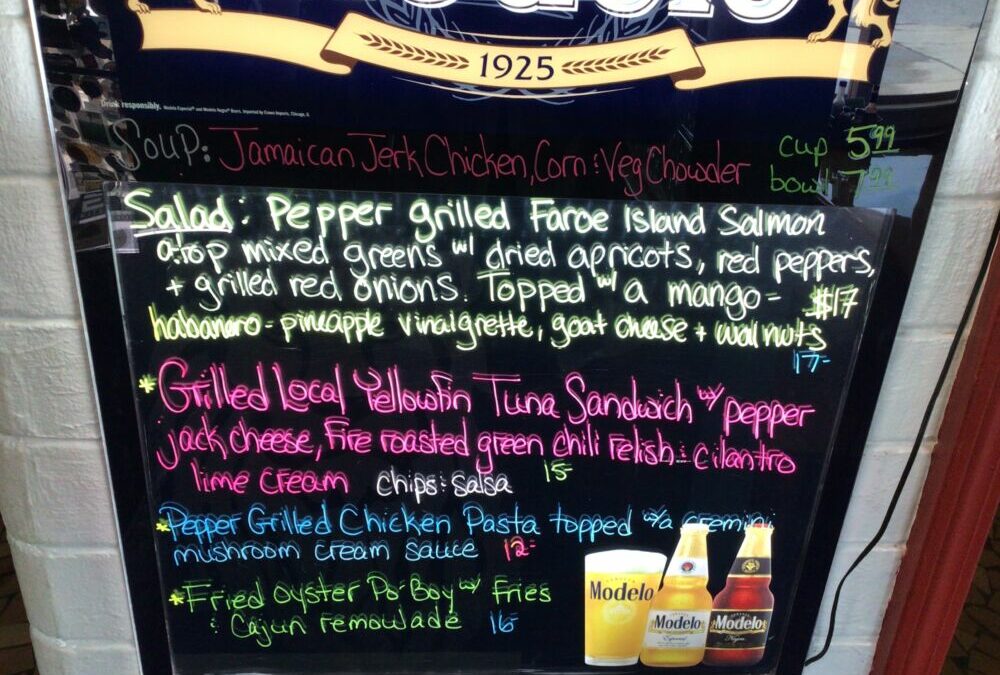 1925
Drink responsibly. Modelo Especial® and Modelo Negra® Beers. Imported by Crown Imports, Chicago, IL
Soup: Jamaican Jerk Chicken, Corn & Veg Chowder cup 5.99
bowl 7.99
Salad: Pepper grilled Faroe Island Salmon
atop mixed greens w/ dried apricots, red peppers,
+ grilled red onions. Topped w/ a mango- $17
habanero-pineapple vinaigrette, goat cheese + walnuts
17-
*Grilled Local Yellowfin Tuna Sandwich w/ pepper
jack cheese, Fire roasted green chili relish & cilantro
lime cream chips & salsa 15-
*Pepper Grilled Chicken Pasta topped w/a cremini
mushroom cream sauce 12-
*Fried oyster Po-Boy w/ Fries
& Cajun remoulade 16-
Modelo Modelo Modelo
Especial Negra